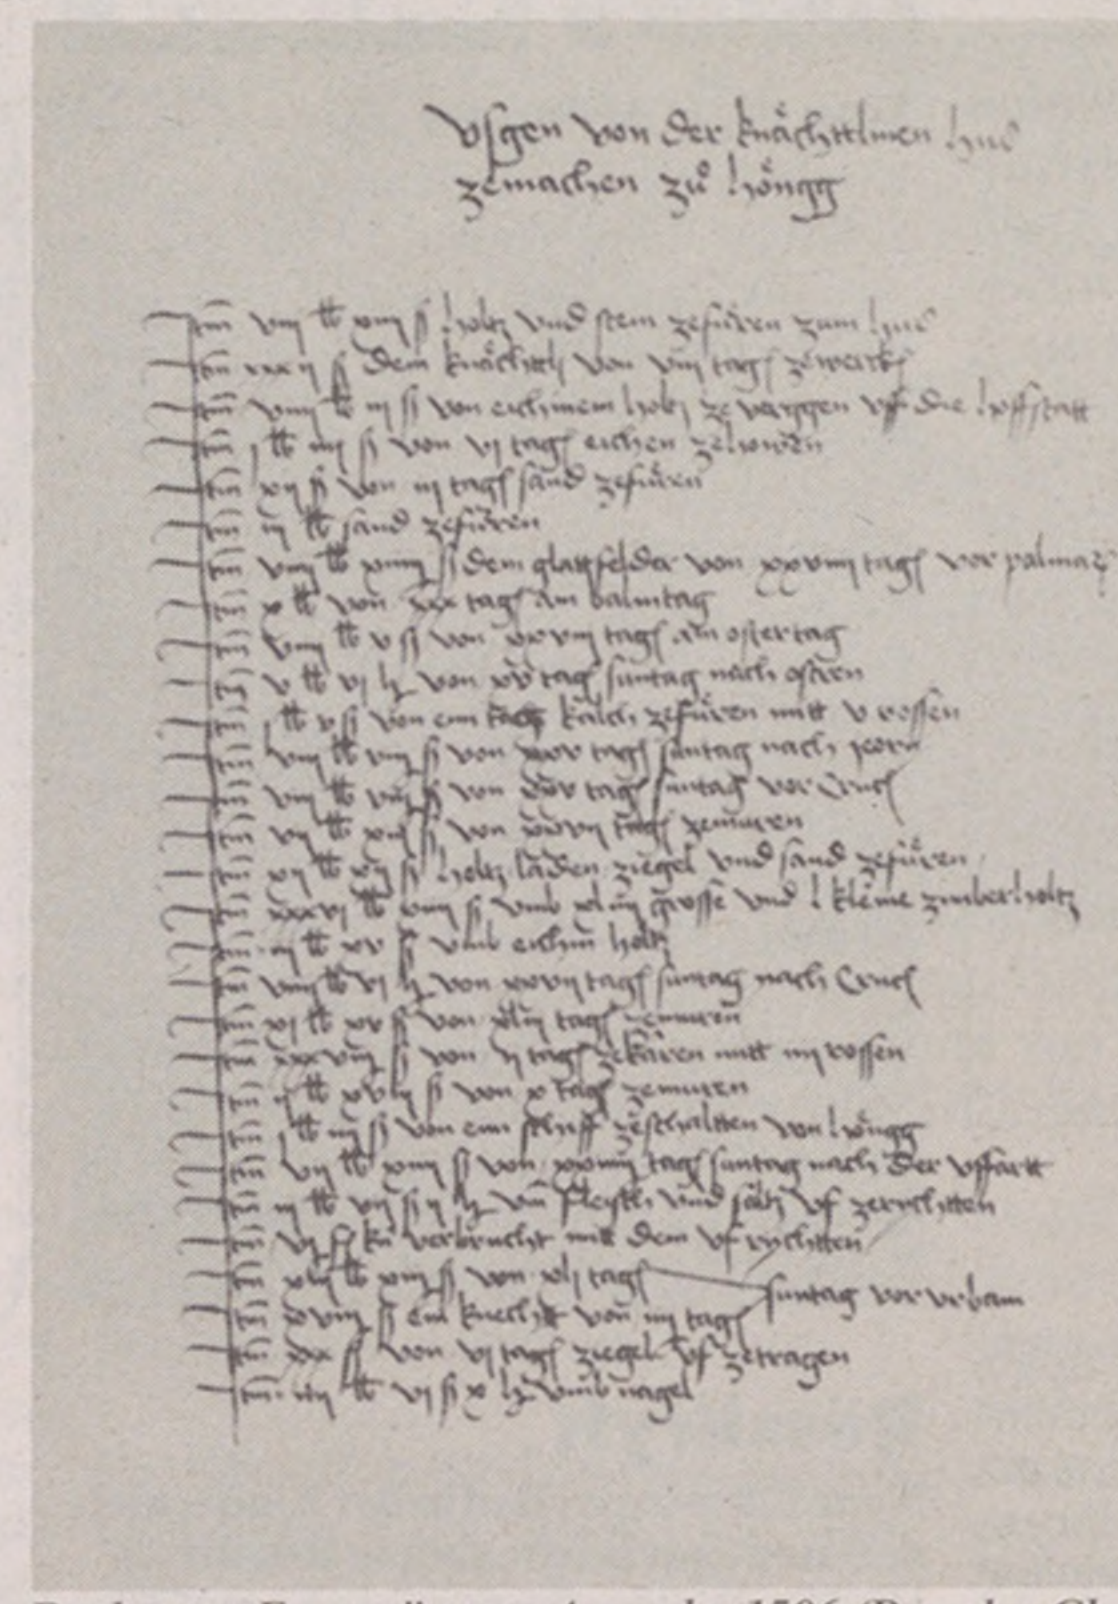 vsgen von der knächttlinen hus
zemachen zů höngg
Itm viij lb xiiij ß holtz vnd stein zefüren zum hus
Itm xxxij ß dem knächttli von viij tagen zewerken
Itm viiij lb iij ß von eichinem holtz ze verggen vff die hoffstatt
Itm j lb iiij ß von vj tagen eichen zehowen
Itm xij ß von iij tagen sand zefüren
Itm iij lb sand zefüren
Itm viiij lb xiiij ß dem glattfelder von xxviiij tagen vor palmar
Itm x lb von xxx tagen am balmtag
Itm viiij lb v ß von xxviij tagen am ostertag
Itm v lb vj h von xv tagen suntag nach ostren
Itm j lb v ß von eim kalch zefüren mitt v rossen
Itm viij lb viij ß von xxv tagen suntag nach
Itm viij lb viij ß von xxv tagen suntag vor Crucis
Itm vij lb xiij ß von xxvij tagen zemuren
Itm xj lb xij ß holtz laden ziegel vnd sand zefüren
Itm xxxvj lb xiiij ß vmb xliiij grosse vnd l kleine zimberholtz
Itm iij lb xv ß vmb eichin holtz
Itm viiij lb vj h von xxvij tagen suntag nach Crucis
Itm xj lb xv ß von xliij tagen zemuren
Itm xxxviij ß von ij tagen zekären mitt iiij rossen
Itm ij lb xviij ß von x tagen zemuren
Itm j lb iiij ß von eim schiff zeschaltten von höngg
Itm vij lb xiiij ß von xxiiij tagen suntag nach der vffartt
Itm iij lb vij ß ij h vm fleysch vnd saltz vf zerychtten
Itm vj verbrucht mit dem vf rychtten
Itm xiij lb xiiij ß von xlj tagen suntag vor vrbani
Itm xviij ß eim knecht von iiij tagen
Itm xxx ß von vj tagen ziegel vf zetragen
Itm iiij lb vj ß x h vmb nagel